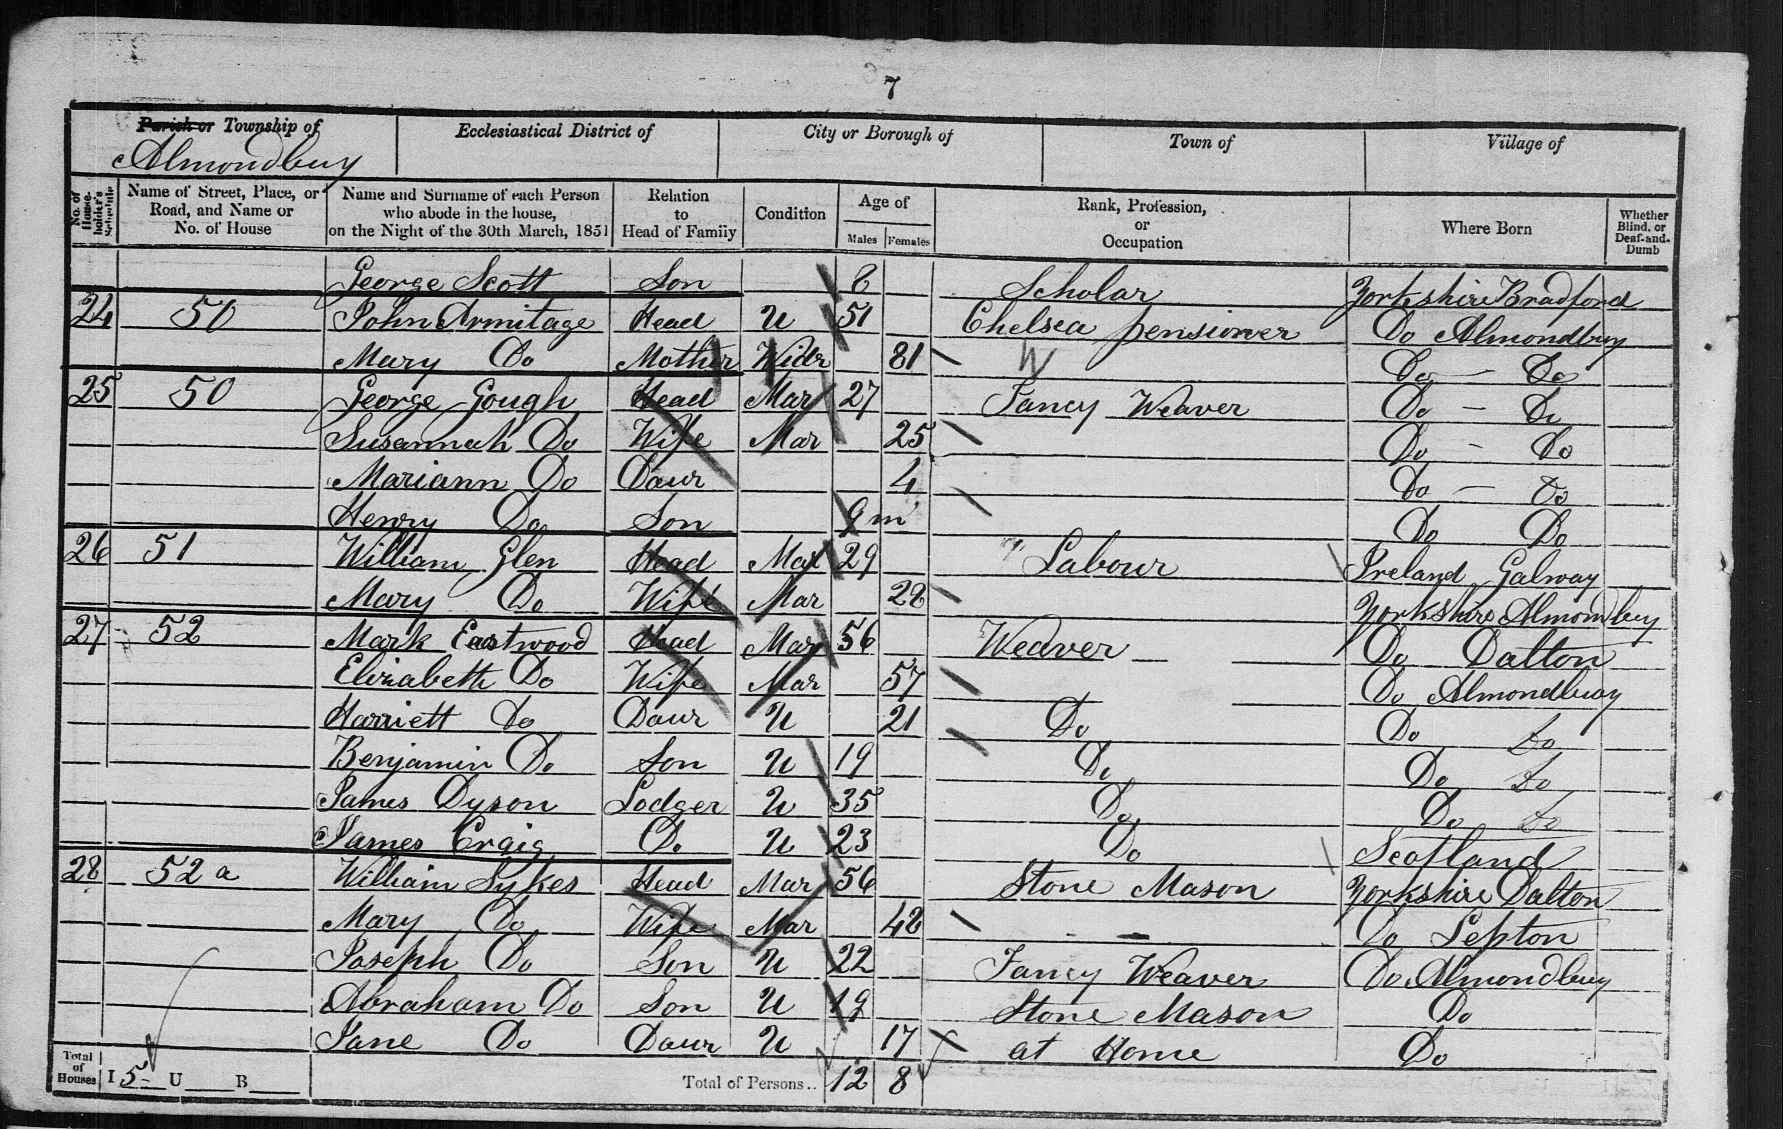 7
Parish or Township of Ecclesiastical District of City or Borough of Town of Village of
Almondbury
No. of House-holder's Schedule Name of Street, Place, or Road, and Name or No. of House Name and Surname of each Person who abode in the house, on the Night of the 30th March, 1851 Relation to Head of Family Condition Age of Males Females Rank, Profession, or Occupation Where Born Whether Blind, or Deaf-and-Dumb
George Scott Son 8 Scholar Yorkshire Bradford
24 50 John Armitage Head U 51 Chelsea pensioner Do Almondbury
Mary Do Mother Widr 81 W Do Do
25 50 George Gough Head Mar 27 Fancy Weaver Do - Do
Susannah Do Wife Mar 25 Do - Do
Mariann Do Daur 4 Do - Do
Henry Do Son 9 m Do Do
26 51 William Glen Head Mar 29 Labour Ireland Galway
Mary Do Wife Mar 28 Yorkshire Almondbury
27 52 Mark Eastwood Head Mar 56 Weaver Do Dalton
Elizabeth Do Wife Mar 57 Do Almondbury
Harriett Do Daur U 21 Do Do Do
Benjamin Do Son U 19 Do Do Do
James Dyson Lodger U 35 Do Do Do
James Craig Do U 23 Do Scotland
28 52 a William Sykes Head Mar 56 Stone Mason Yorkshire Dalton
Mary Do Wife Mar 48 - Do Lepton
Joseph Do Son U 22 Fancy Weaver Do Almondbury
Abraham Do Son U 19 Stone Mason Do
Jane Do Daur U 17 at Home Do
Total of Houses I 5 U B Total of Persons.. 12 8